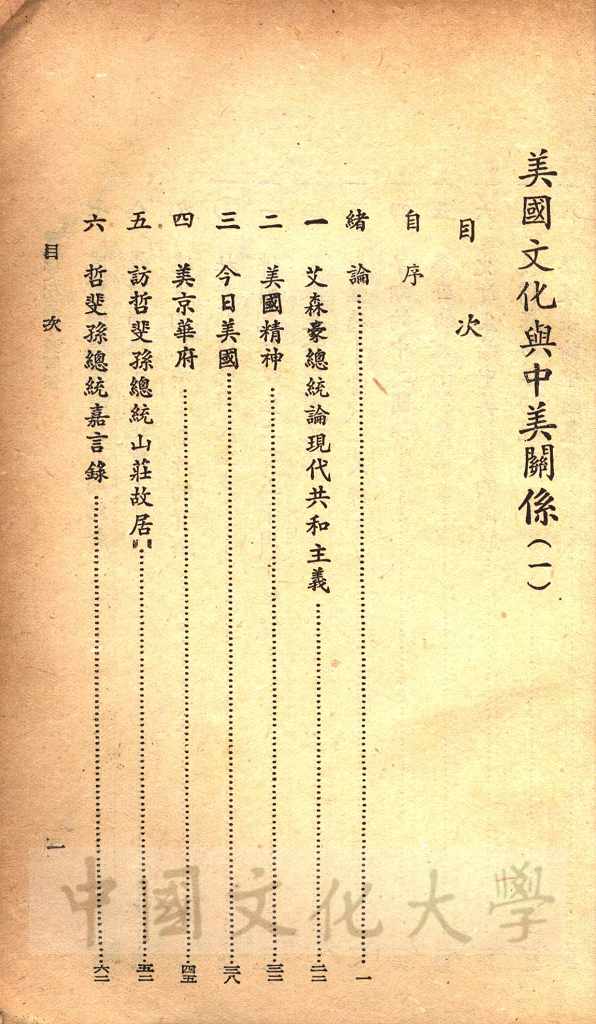 美國文化與中美關係（一）
目 次
自 序
緒 論……一
一 艾森豪總統論現代共和主義……二二
二 美國精神……三二
三 今日美國……三八
四 美京華府……四五
五 訪哲斐孫總統山莊故居……五二
六 哲斐孫總統嘉言錄……六二
目 次
一
中國文化大學